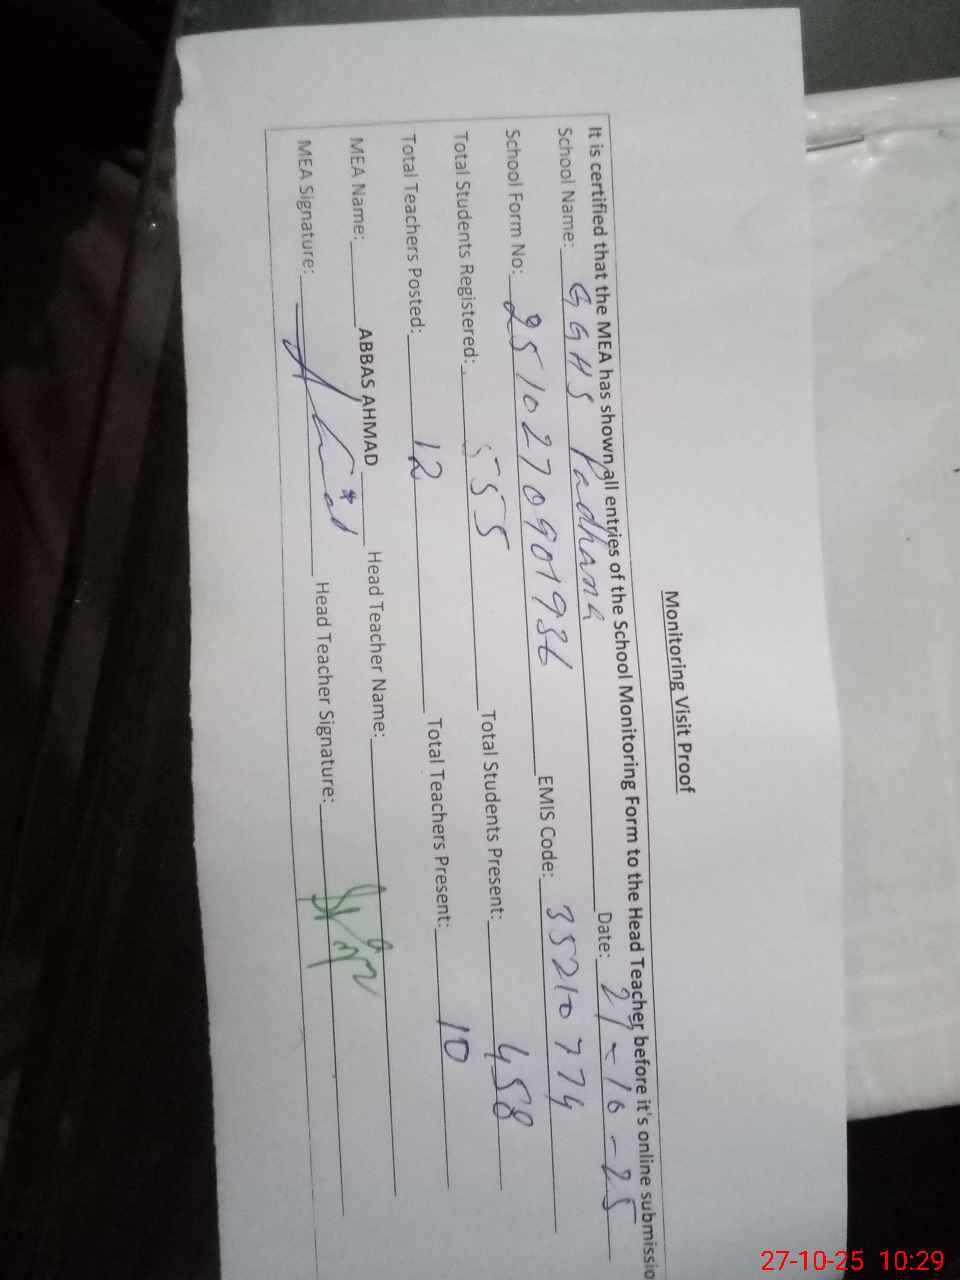 Monitoring Visit Proof
It is certified that the MEA has shown all entries of the School Monitoring Form to the Head Teacher before it's online submissio
School Name: GGHS Padhana Date: 27-10-25
School Form No: 2510270901936 EMIS Code: 35210774
Total Students Registered: 555 Total Students Present: 458
Total Teachers Posted: 12 Total Teachers Present: 10
MEA Name: ABBAS AHMAD Head Teacher Name:
MEA Signature: Head Teacher Signature:
27-10-25 10:29